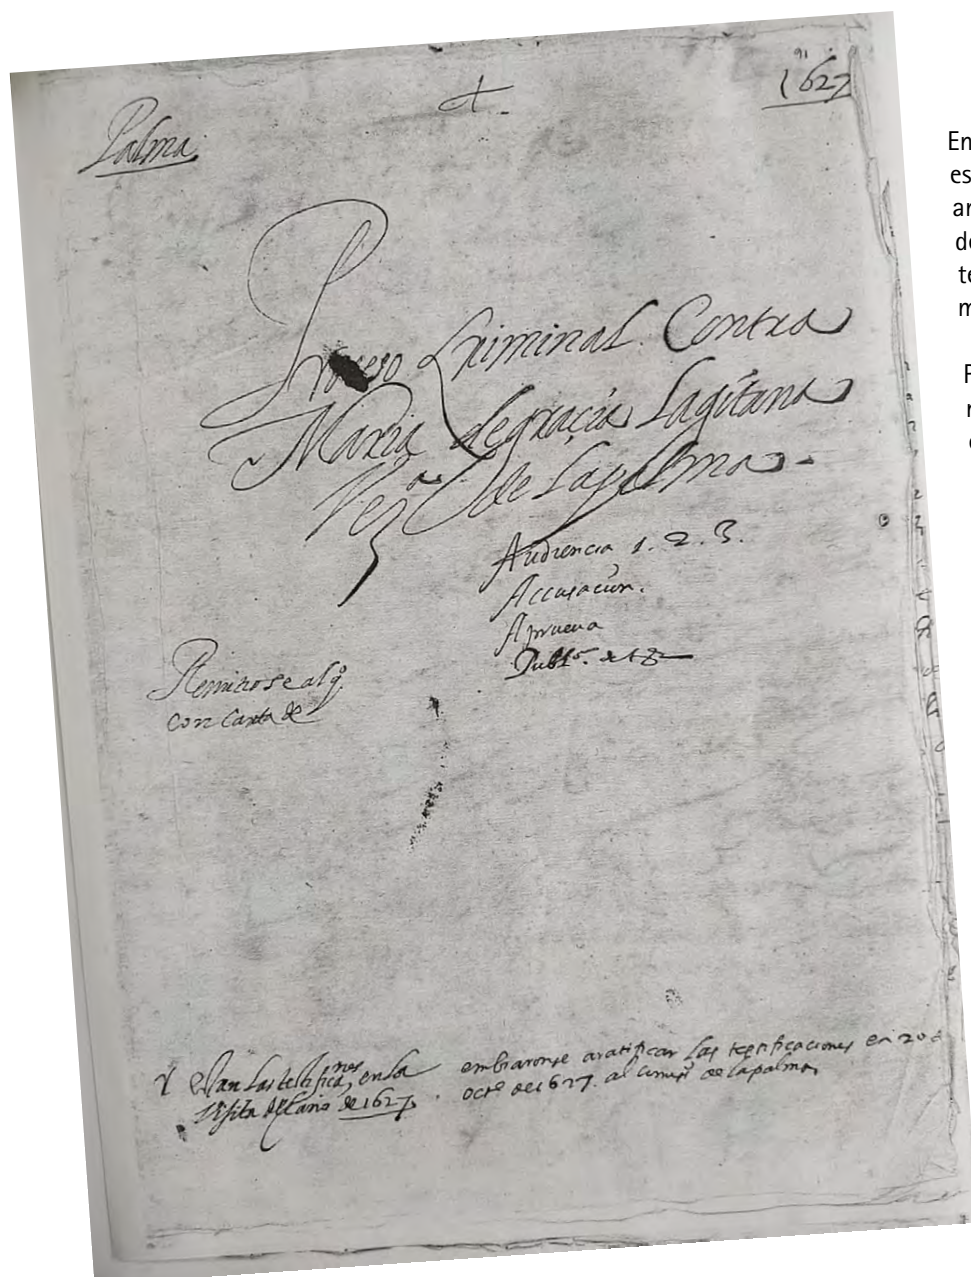 Palma
1627
Proceso Criminal. Contra
Maria degracia Lagitana
Vezª de Lapalma.
Audiencia 1. 2. 3.
Accusacion.
Aprueva
Publ
Remitiose al
con Carta de
en la
Visita del año de 1627.
embiaronse aratificar las testificaciones en 20 d
octe de 1627. al de Lapalma
En
es
ar
de
te
m